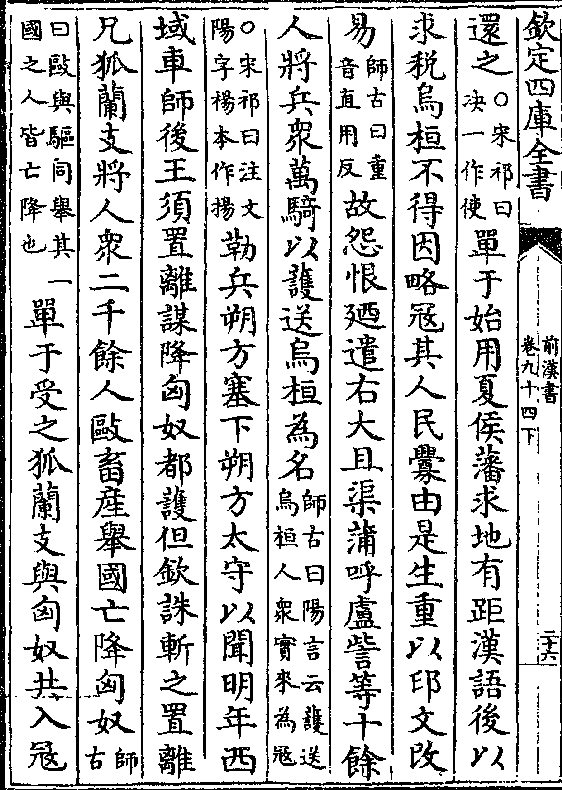 欽定四庫全書
前漢書
卷九十四下
二十六
還之○宋祁曰決一作使單于始用夏侯藩求地有距漢語後以
求稅烏桓不得因略冦其人民釁由是生重以印文改
易師古曰重音直用反故怨恨廼遣右大且渠蒲呼盧訾等十餘
人將兵衆萬騎以護送烏桓為名師古曰陽言云護送烏桓人衆實來為冦
○宋祁曰注文陽字楊本作揚勒兵朔方塞下朔方太守以聞明年西
域車師後王須置離謀降匈奴都護但欽誅斬之置離
兄狐蘭支將人衆二千餘人敺畜産舉國亡降匈奴師古
曰敺與驅同舉其一國之人皆亡降也單于受之狐蘭支與匈奴共入冦